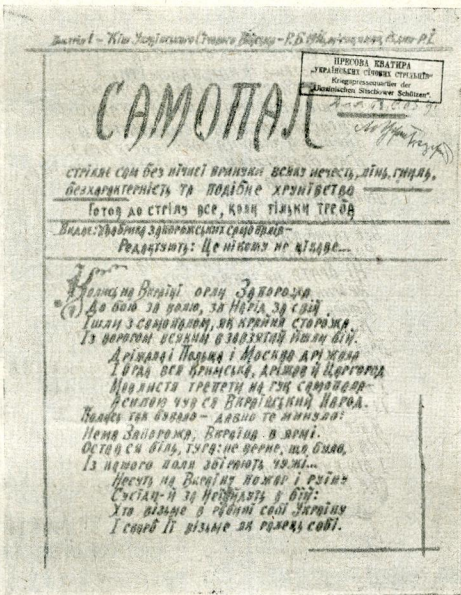 Кіш Українського Січового Війська
ПРЕСОВА КВАТИРА
„УКРАЇНСЬКИХ СІЧОВИХ СТРІЛЬЦІВ"
Kriegspressequartier der
„Ukrainischen Sitschower Schützen".
САМОПАЛ
стріляє сам без нічиєї принуки всяку нечесть, лінь, гниль,
безхарактерність та подібне хрунівство
Готов до стрілу все, коли тільки треба
Видає: Фабрика запорожських самопалів —
Редактують: Це нікому не цікаве...
Колись на Вкраїні орли Запорожа
До бою за волю, за Нарід, за свій
Ішли з самопалом, як країни сторожа
Із ворогом всяким в завзятий йшли бій.
Дріжала і Польща і Москва дріжала
І Орда вся Кримська, дріжав й Царгород
Мов листя трепети на гук самопала
А силою чув ся Вкраїнський Народ.
Колись так бувало — давно те минуло:
Нема Запорожа, Вкраїна в ярмі.
Остав ся біль, туга: не верне, що було,
Із нашого поля збірають чужі...
Несуть на Вкраїну пожар і руїну
Сусіди — й за неї йдуть в бій:
Хто візьме в рабині собі Україну
І скарб її візьме як ралець собі.